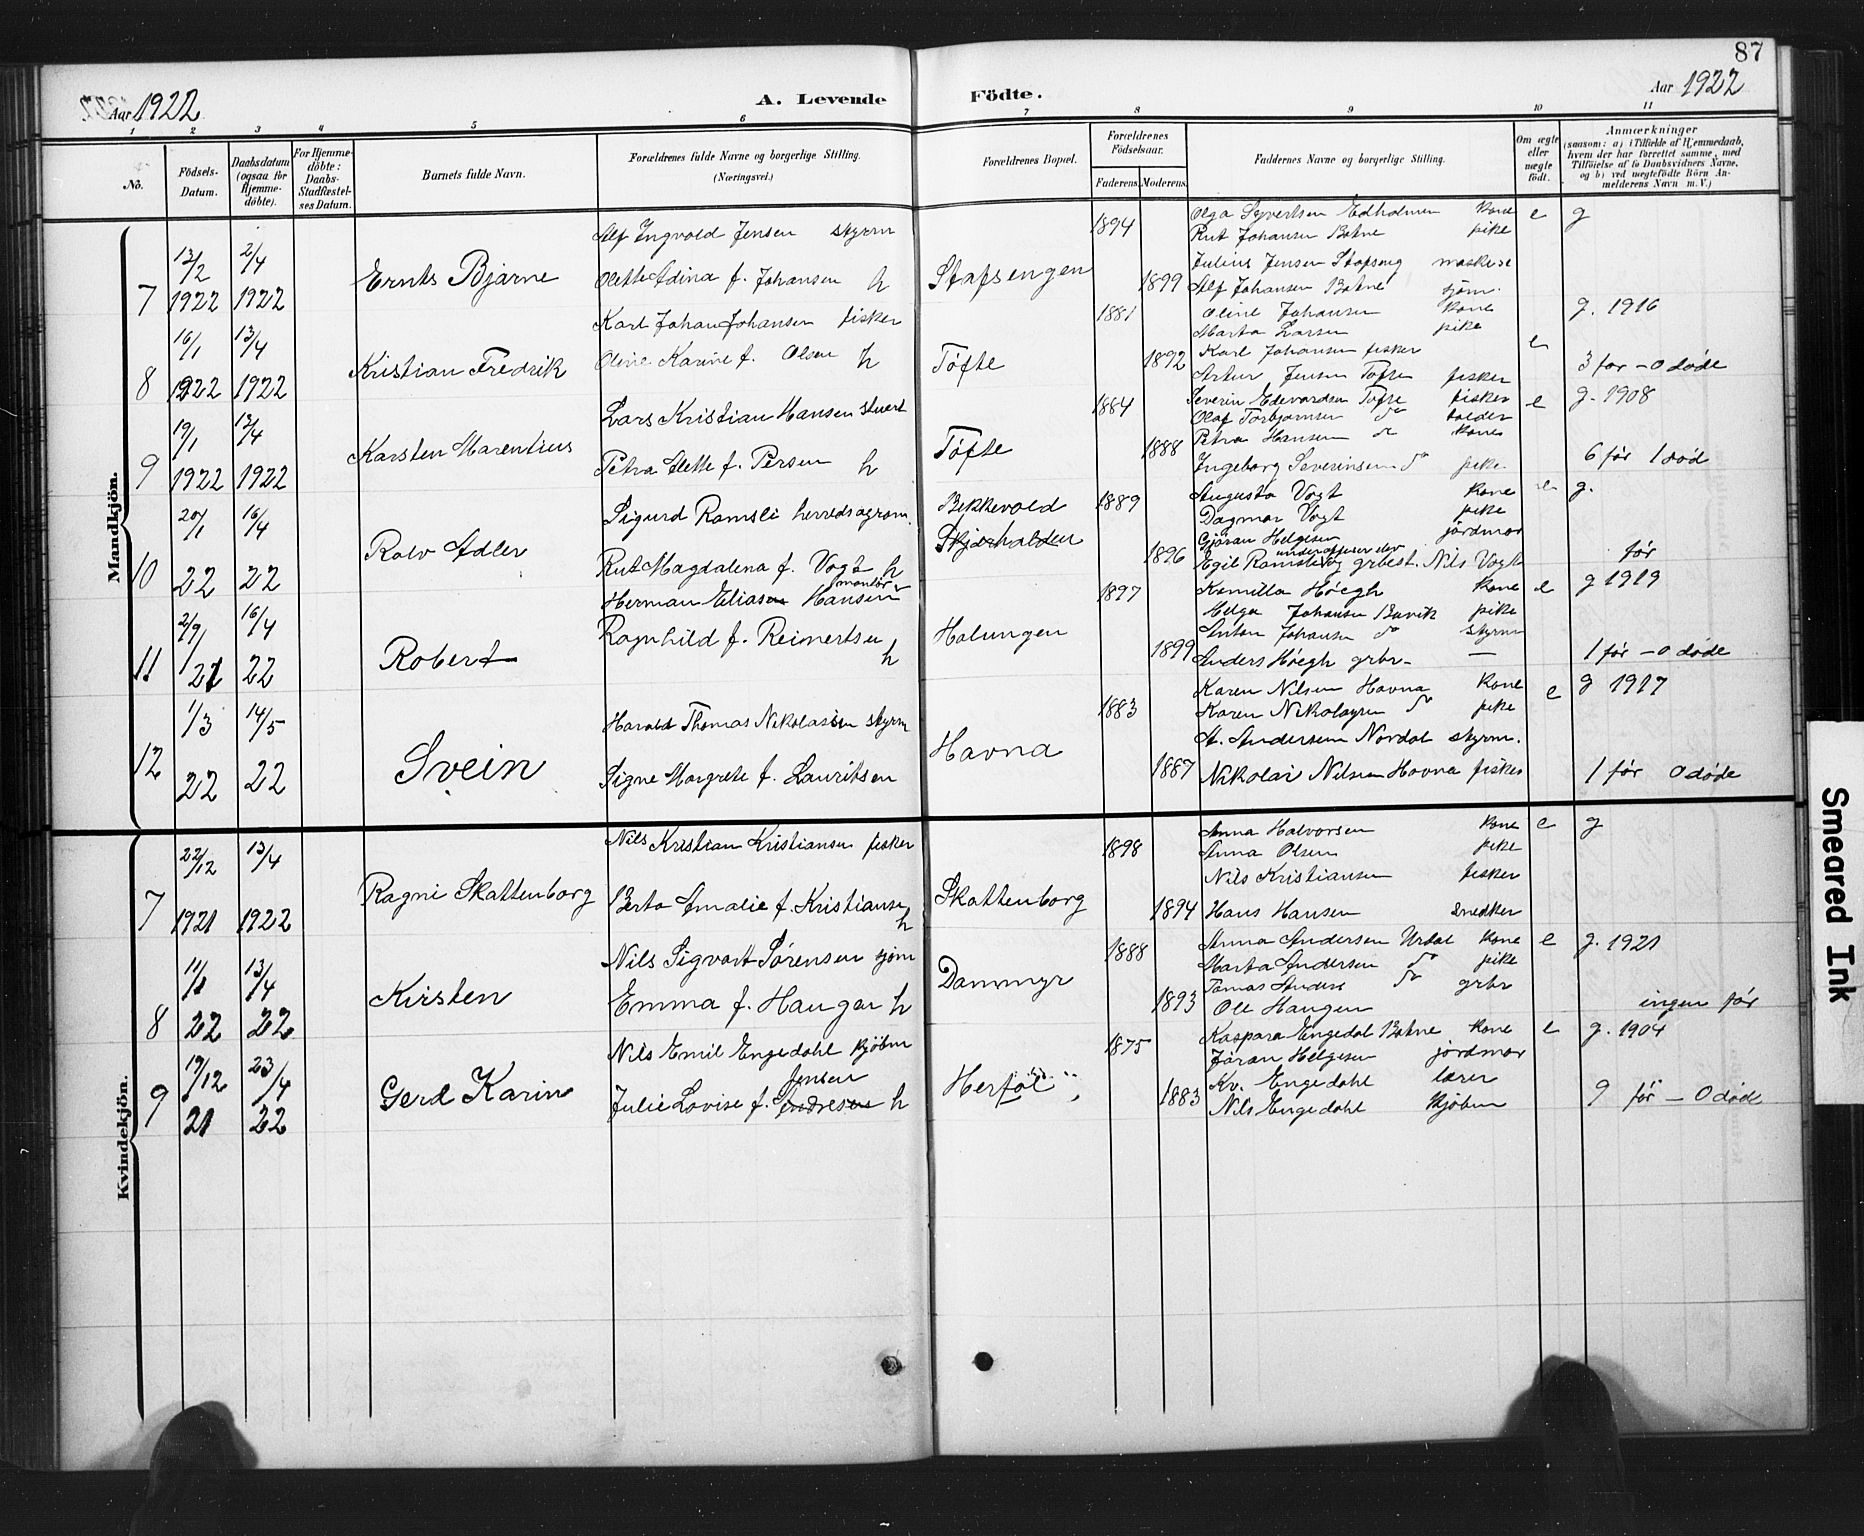 87
Aar 1922
A. Levende Fødte.
Aar 1922
1 2 3 4 5 6 7 8 9 10 11
No.
Fødsels-Datum.
Daabsdatum (ogsaa for Hjemme-døbte).
For Hjemme-døbte: Daabs-Stadfæstel-ses Datum.
Barnets fulde Navn.
Forældrenes fulde Navne og borgerlige Stilling. (Næringsvei.)
Forældrenes Bopæl.
Forældrenes Fødselsaar.
Faderens. Moderens.
Faddernes Navne og borgerlige Stilling.
Om ægte eller uægte født.
Anmærkninger
(saasom: a) i Tilfælde af Hjemmedaab, hvem der har forrettet samme, med Tilføielse af to Daabsvidners Navne, og b) ved uægtefødte Børn An-melderens Navn m. V.)
Mandkjøn.
7
13/2 1922
2/4 1922
Ernts Bjarne
Alf Ingvold Jensen styrm
Olette Adina f. Johansen h
Stafsengen
1894
1899
Olga Syvertsen Edholmen kone
Rut Johansen Botne pike
Julius Jensen Stafseng maskist
Alf Johansen Botne sjøm.
e
g
8
16/1 1922
13/4 1922
Kristian Fredrik
Karl Johan Johansen fisker
Oline Karine f. Olsen h
Tøfte
1881
1892
Oline Johansen kone
Marta Larsen pike
Karl Johansen fisker
Artur Jensen Tøfte fisker
e
g. 1916
3 før - 0 døde
9
19/1 1922
13/4 1922
Karsten Marentius
Lars Kristian Hansen stuert
Petra Elette f. Persen h
Tøfte
1884
1888
Severin Edevardsen Tofte fisker
Olaf Torbjørnsen do tolder
Petra Hansen do kone
Ingeborg Severinsen do pike
e
g. 1908
6 før 1 død
10
20/1 22
16/4 22
Rolv Adler
Sigurd Ramsli herredsagrom.
Rut Magdalena f. Vogt h
Bekkevold
Skjærhalden
1889
1896
Augusta Vogt kone
Dagmar Vogt pike
Gjøran Helgesen jordmor
underofficer elev
Egil Ramsli og grbest. Nils Vogt
e
g.
før
11
2/9 1921
16/4 22
Robert
Herman Eliasen Hansen montør
Ragnhild f. Reinertsen h
Holungen
1897
1899
Kamilla Høegh kone
Helga Johansen Buvik pike
Anton Johansen do styrm
Anders Høegh grbr -
e
g 1919
1 før - 0 døde
12
1/3 22
14/5 22
Svein
Harald Thomas Nikolaisen styrm
Signe Margrete f. Lauritsen
Havna
1883
1887
Karen Nilsen Havna kone
Karen Nikolaysen do pike
A. Andersen Nordal styrm.
Nikolai Nilsen Havna fisker
e
g 1917
1 før 0 døde
Kvindekjøn.
7
22/12 1921
13/4 1922
Ragni Skattenborg
Nils Kristian Kristiansen fisker
Berta Amalie f. Kristiansen h
Skattenborg
1898
1894
Anna Halvorsen kone
Anna Olsen pike
Nils Kristiansen fisker
Hans Hansen snedker
e
g
8
11/1 22
13/4 22
Kirsten
Nils Sigvart Sørensen sjøm
Emma f. Haugen h
Dammyr
1888
1893
Anna Andersen Urdal kone
Marta Andersen do pike
Tomas Anders do grbr
Ole Haugen
e
g. 1921
ingen før
9
19/12 21
23/4 22
Gerd Karin
Nils Emil Engedahl kjøbm
Jensen
Julie Lovise f. Andresen h
Herføl
1875
1883
Kaspara Engedal Botne kone
Jøran Helgesen jordmor
Kr. Engedahl lærer
Nils Engedahl kjøbm
e
g. 1904
9 før - 0 døde
Smeared Ink